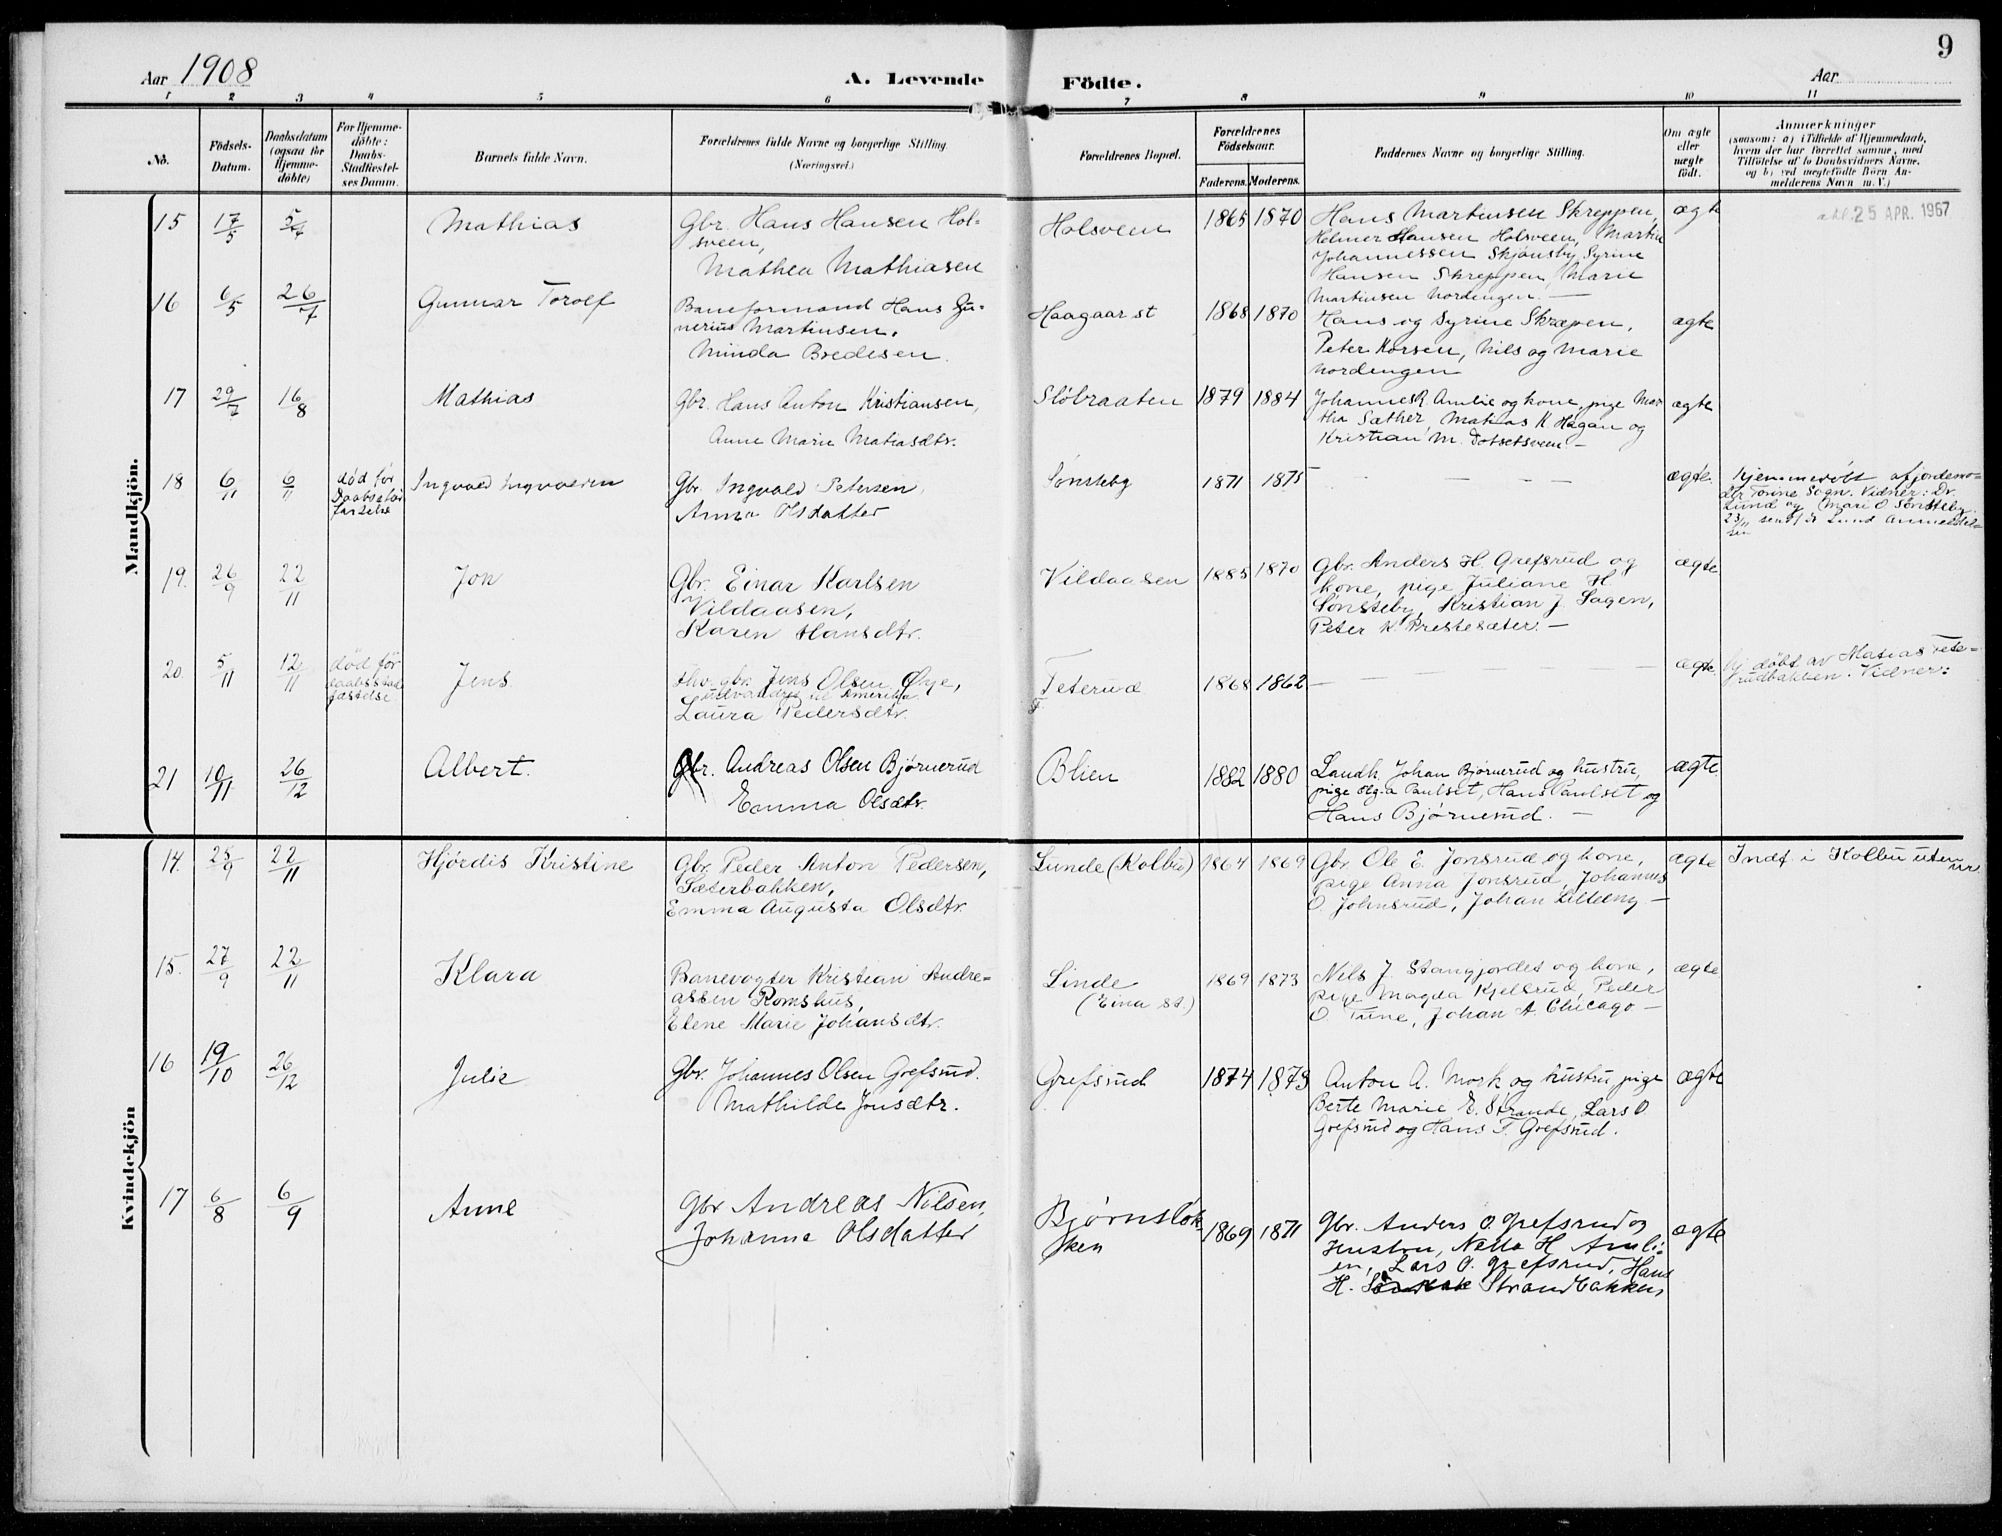 9
Aar 1908
A. Levende Födte.
Aar
1 2 3 4 5 6 7 8 9 10 11
No.
Födsels-
Datum.
Daabsdatum
(ogsaa for
Hjemme-
döbte)
For Hjemme-
döbte:
Daabs-
Stadfæstel-
ses Datum.
Barnets fulde Navn.
Forældrenes fulde Navne og borgerlige Stilling.
(Næringsvei.)
Forældrenes Bopæl.
Forældrenes
Födselsaar.
Faderens. Moderens.
Faddernes Navne og borgerlige Stilling.
Om ægte
eller
uægte
födt.
Anmærkninger
(saasom: a) i Tilfælde af Hjemmedaab,
hvem der har forrettet samme, med
Tilföielse af to Daabsvidners Navne,
og b) ved uægtefödte Börn An-
melderens Navn m. V.)
Mandkjön.
15
17/5
5/7
Mathias
Gbr. Hans Hansen Hol-
sveen,
Mathea Mathiasen
Holsveen
1865 1870
Hans Martinsen Skreppen,
Helmer Hansen Holsveen, Martin
Johannessen Skjønsby, Syrine
Hansen Skreppen, Marie
Martinsen Nordengen. —
ægte
25 APR. 1967
16
6/5
26/7
Gunnar Torolf
Baneformand Hans Gu-
nerius Martinsen.
Minda Bredesen.
Haagaar st
1868 1870
Hans og Syrine Skræpen,
Peter Korsen, Nils og Marie
Nordengen
ægte
17
29/7
16/8
Mathias
Gbr. Hans Anton Kristiansen,
Anne Marie Matiasdtr.
Slöbraaten
1879 1884
Johannes R. Amlie og kone, pige Mar
tha Sæther, Matias K. Hagan og
Kristian M. Totsetsveen —
ægte
18
6/11
6/11
død før
Daabsstad
fæstelse
Ingvald Ingvaldsen
Gbr. Ingvald Petersen,
Anna Olsdatter
Sønsteby
1871 1875
— — — —
ægte.
Hjemmedøbt af jordemo-
der Tonne Sogn. Vidner: Dr.
Lund og Mari O Sønsteby.
23/11 sendt dr Lund Anmeldel-
sen
19.
26/9
22/11
Jon
Gbr. Einar Karlsen
Vildaasen,
Karen Hansdtr.
Vildaasen
1885 1870
Gbr. Anders H. Grefsrud og
kone, pige Juliane H.
Sønsteby, Kristian J. Sagen,
Peter K. Prestesæter. —
ægte
20.
5/11
12/11
død før
daabsstad
fæstelse
Jens
Fhv. gbr. Jens Olsen Øye,
udvandret til Amerika.
Laura Pedersdtr.
Teterud
1868 1862
— — — —
ægte.
hj. døbt av Matias Tete-
rudbakken. Vidner:
21
10/11
26/12
Albert.
Gbr. Andreas Olsen Bjørnerud
Emma Olsdtr.
Blien
1882 1880
Landh. Johan Bjørnerud og hustru,
pige Olga Paulset, Hans Paulset og
Hans Bjørnerud. —
ægte
Kvindekjön
14.
28/9
22/11
Hjördis Kristine
Gbr. Peder Anton Pedersen,
Sæterbakken,
Emma Augusta Olsdtr.
Lunde (Kolbu)
1864 1869
Gbr. Ole E. Jonsrud og kone,
pige Anna Jonsrud, Johannes
O. Johnsrud, Johan Lilleeng —
ægte
Indf. i Kolbu uten
nr.
15.
27/9
22/11
Klara
Banevogter Kristian Andre-
assen Romshus,
Elene Marie Johansdtr.
Linde
(Eina st.)
1869 1873
Nils J. Stangjordet og kone,
pige Magda Kjelsrud, Peder
O. Tune, Johan A. Chicago —
ægte
16
19/10
26/12
Julie
Gbr. Johannes Olsen Grefsrud.
Mathilde Jonsdtr.
Grefsrud
1874 1873
Anton A. Mork og hustru, pige
Berte Marie E. Strande, Lars O.
Grefsrud og Hans T. Grefsrud.
ægte
17
6/8
6/9
Anne
Gbr Andreas Nilsen,
Johanne Olsdatter
Bjørnsløk
ken
1869 1871
Gbr. Anders O. Grefsrud og
Hustru, Netta H. Amli-
en, Lars O. Grefsrud, Hans
H. Strandbakken,
ægte